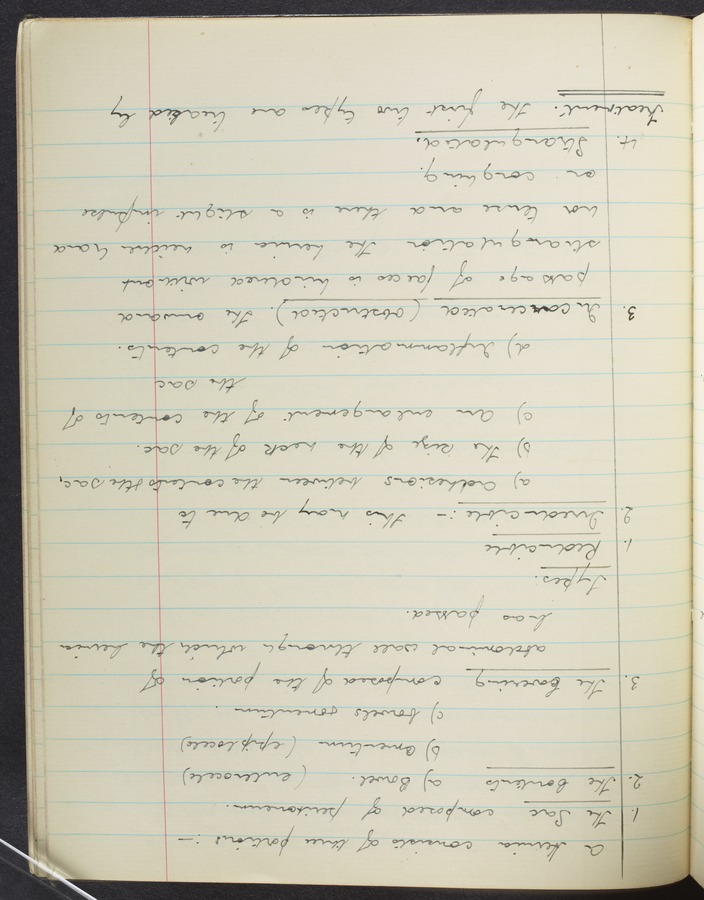 A hernia consists of three portions :-
1. The Sac composed of peritoneum.
2. The Contents a) Bowel. (enterocele)
b) Omentum (epiplocele)
c) bowels & omentum.
3. The Covering composed of the portion of
abdominal wall through which the hernia
has passed.
Types.
1. Reducible
2. Irreducible :- This may be due to
a) Adhesions between the contents & the sac,
b) The size of the neck of the sac.
c) An enlargement of the contents of
the sac
d) Inflammation of the contents.
3. Incarcerated (obstructed). The onward
passage of faeces is hindered without
strangulation the hernia is neither hard
nor tense and there is a slight impulse
on coughing.
4. Strangulated.
Treatment. The first two types are treated by